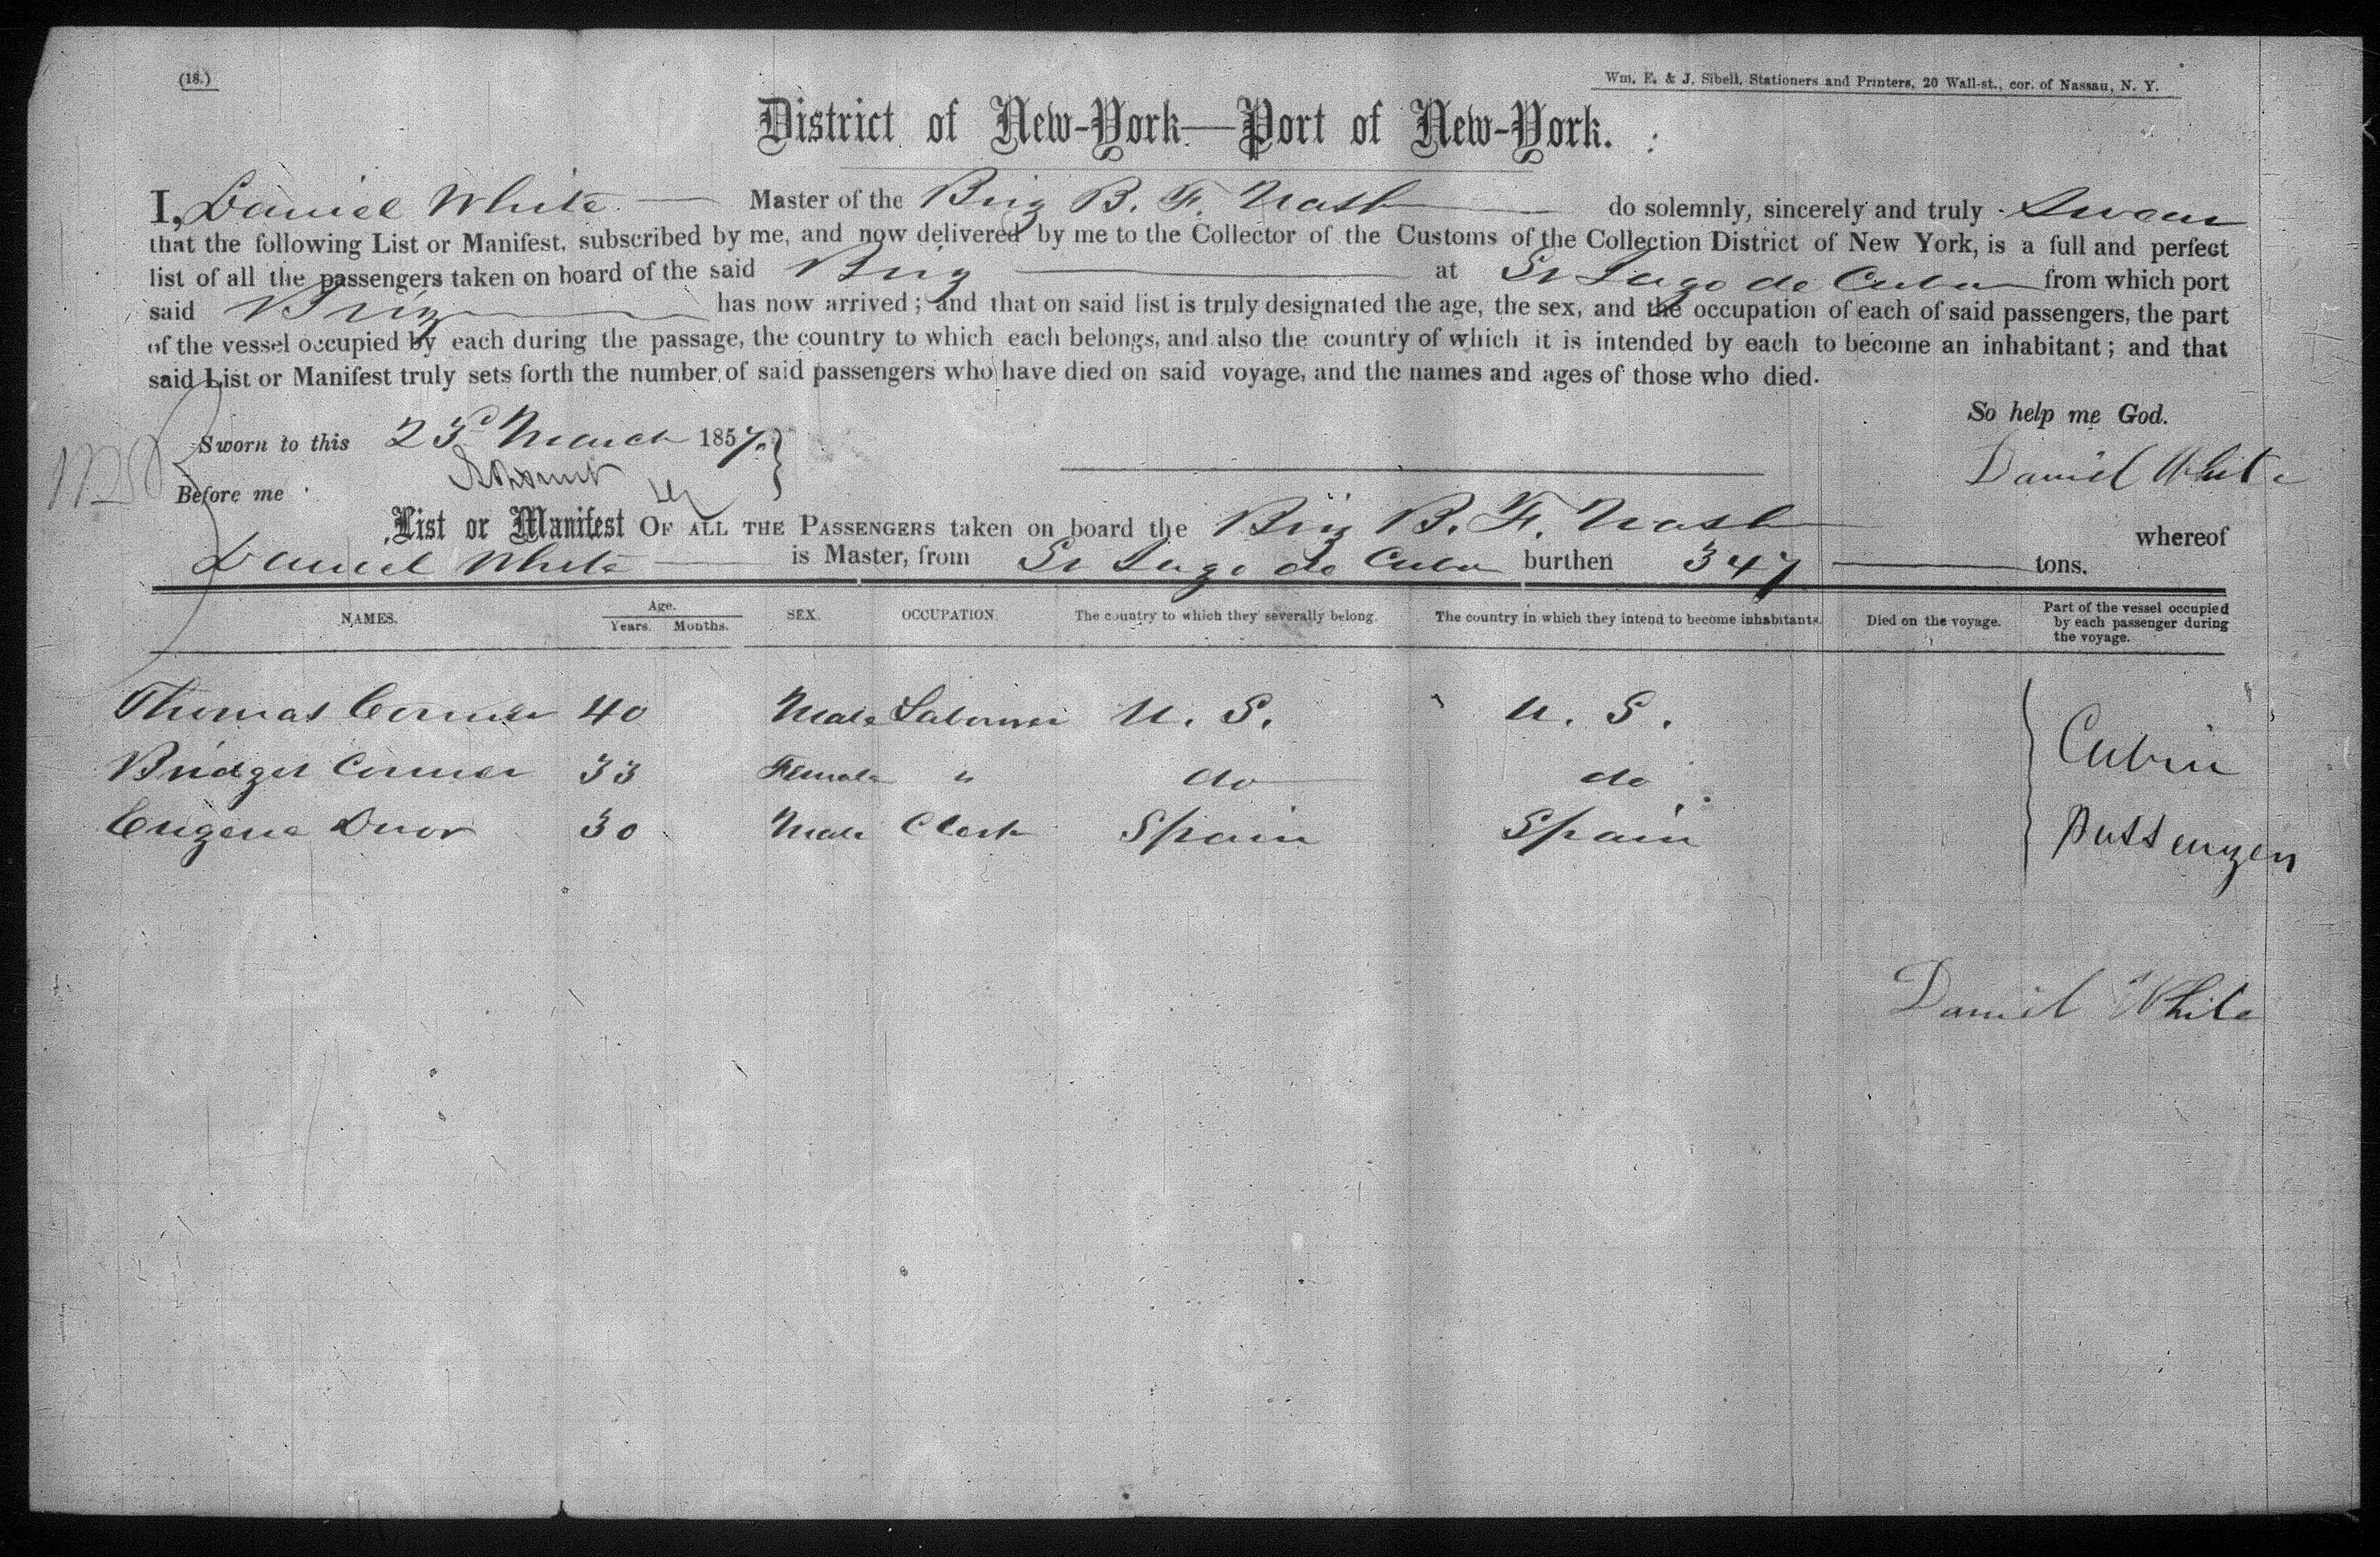 (18.)
Wm. E. & J. Sibell, Stationers and Printers, 20 Wall-st., cor. of Nassau, N. Y.
District of New-York—Port of New-York.
I, Daniel White Master of the Brig B. F. Nash do solemnly, sincerely and truly Swear
that the following List or Manifest, subscribed by me, and now delivered by me to the Collector of the Customs of the Collection District of New York, is a full and perfect
list of all the passengers taken on board of the said Brig at St Iago de Cuba from which port
said Brig has now arrived; and that on said list is truly designated the age, the sex, and the occupation of each of said passengers, the part
of the vessel occupied by each during the passage, the country to which each belongs, and also the country of which it is intended by each to become an inhabitant; and that
said List or Manifest truly sets forth the number of said passengers who have died on said voyage, and the names and ages of those who died.
So help me God.
Sworn to this 23d March 1857.
Daniel White
Before me
List or Manifest OF ALL THE PASSENGERS taken on board the Brig B. F. Nash whereof
Daniel White is Master, from St Iago de Cuba burthen 347 tons.
NAMES. Age. Years. Months. SEX. OCCUPATION. The country to which they severally belong. The country in which they intend to become inhabitants. Died on the voyage. Part of the vessel occupied by each passenger during the voyage.
Thomas Conner 40 Male Labourer U. S. U. S.
Bridget Conner 33 Female " do do
Eugene 30 Male Clerk Spain Spain
Cabin
Passengers
Daniel White